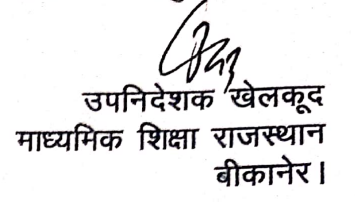 उपनिदेशक खेलकूद
माध्यमिक शिक्षा राजस्थान
बीकानेर।